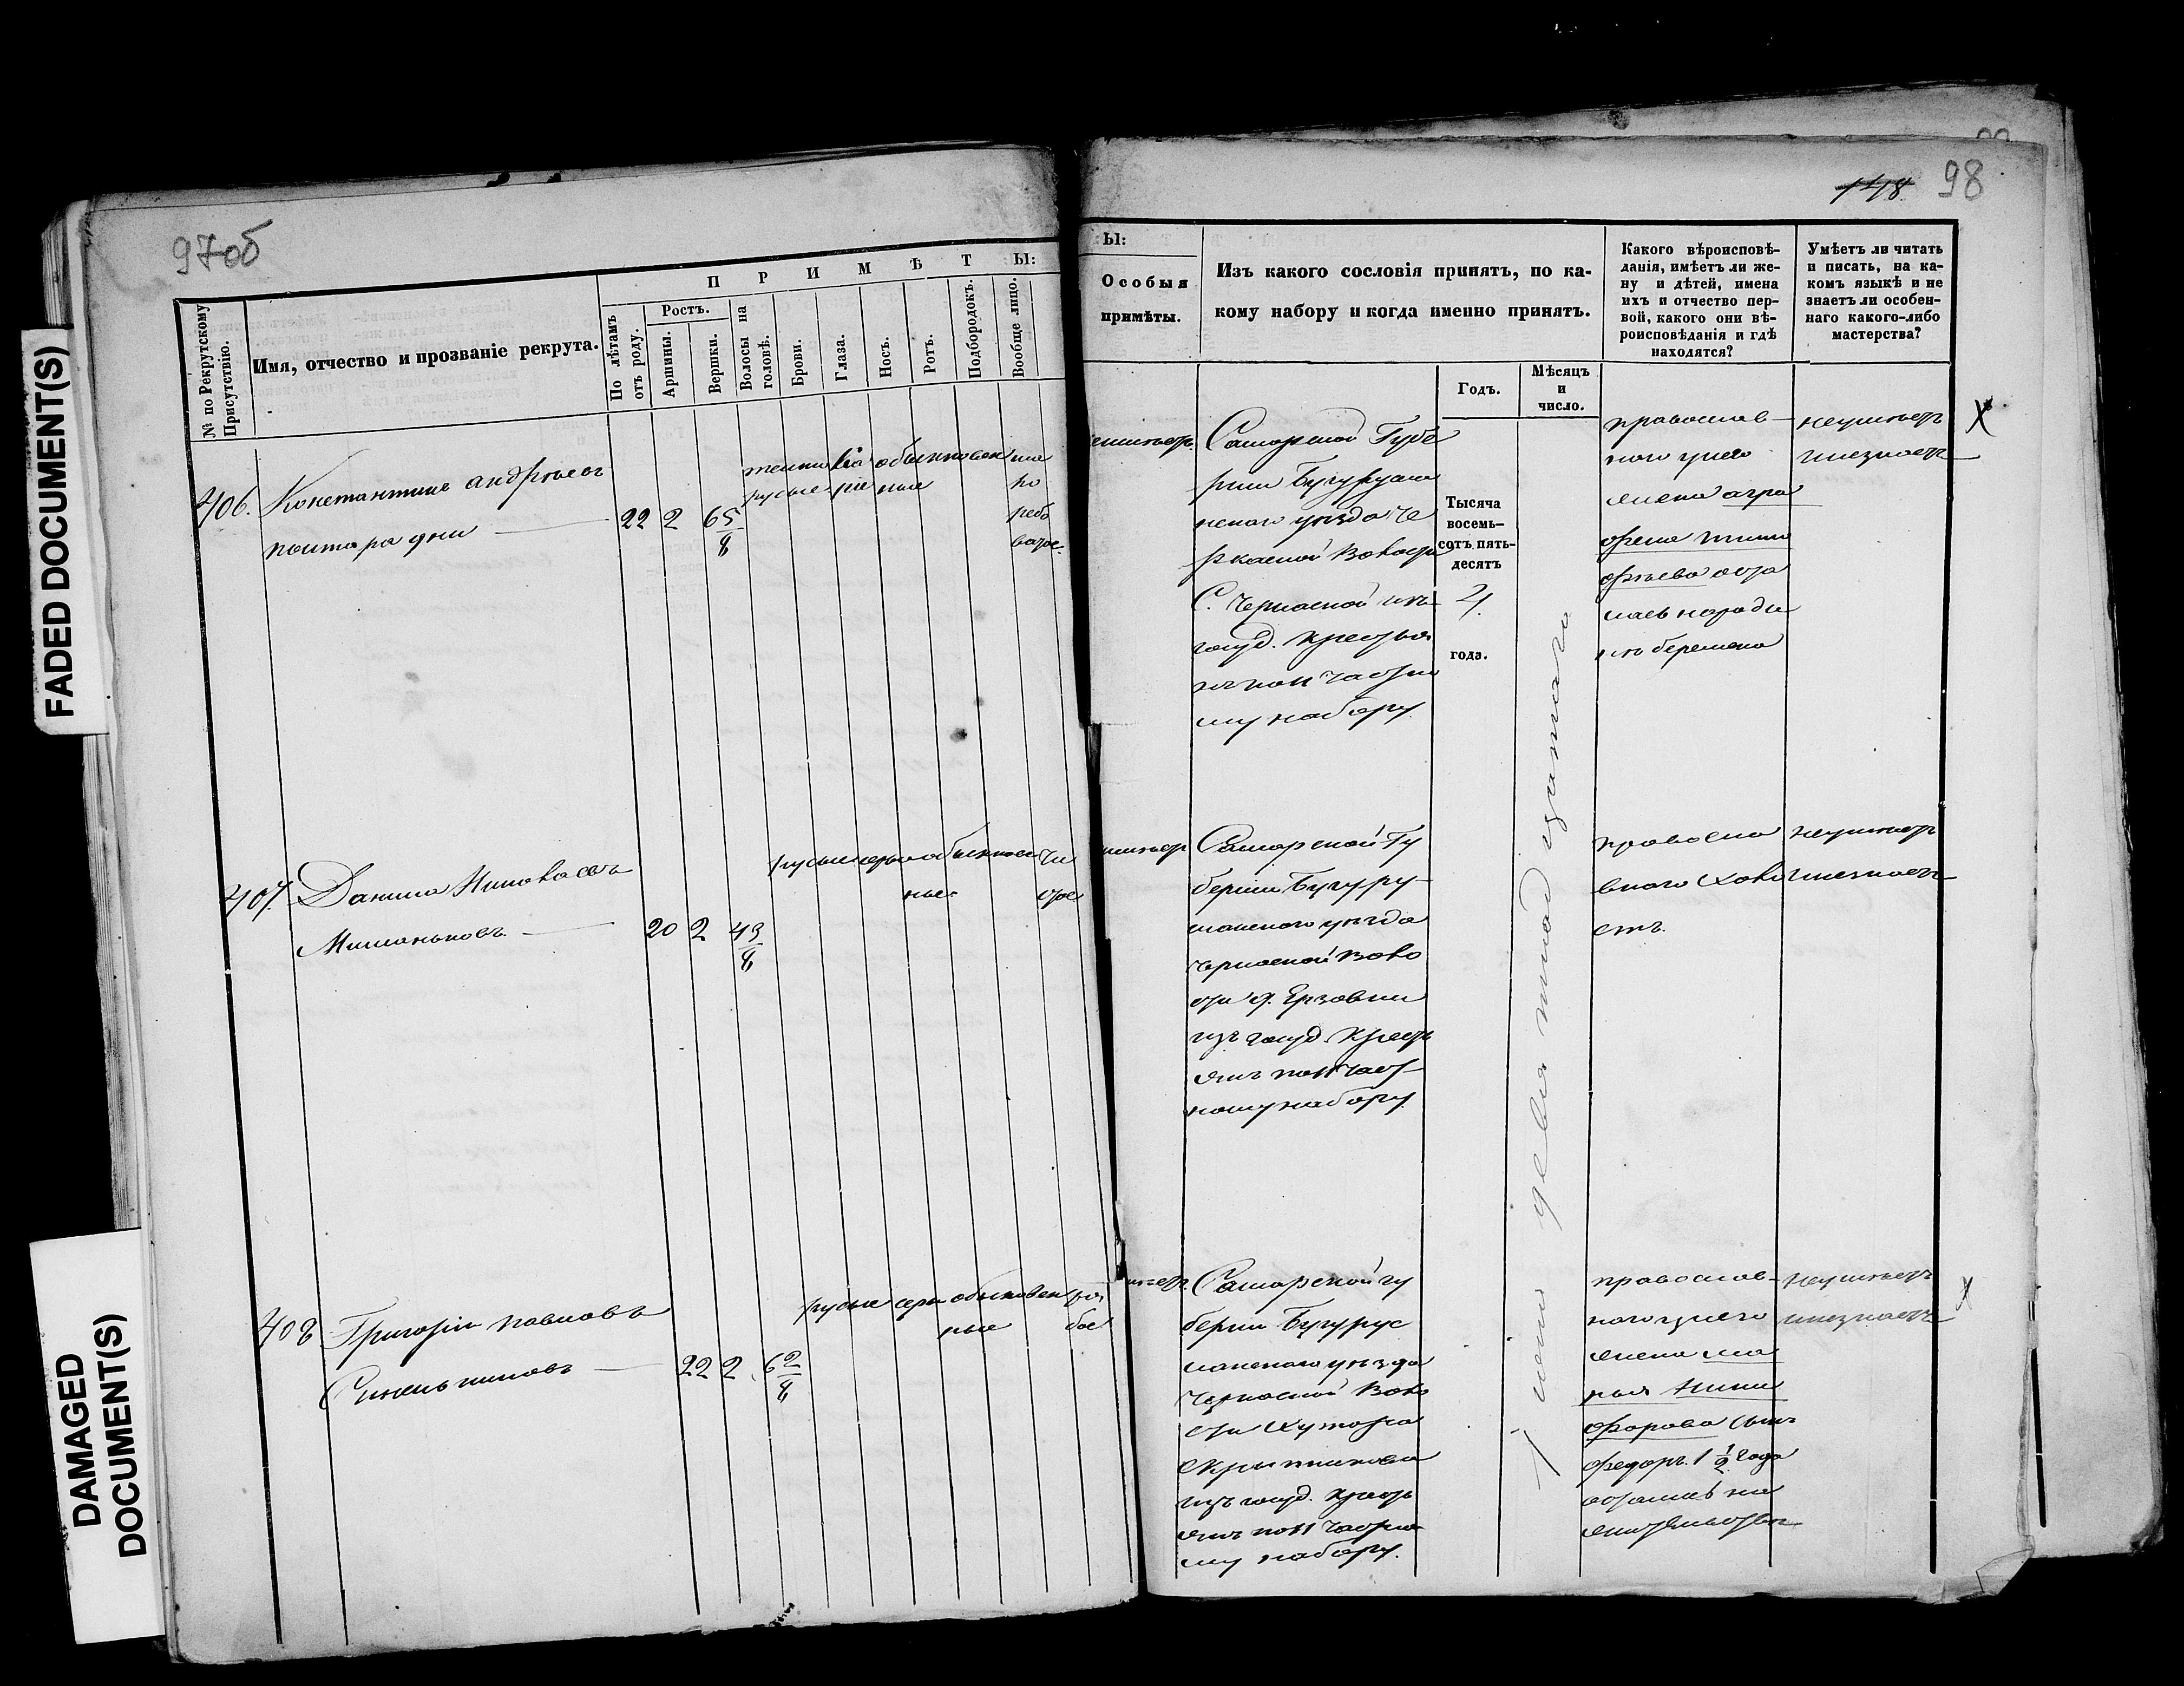 FADED DOCUMENT(S)
DAMAGED
DOCUMENT(S)
97об
118 98
П Р И М Ѣ Т Ы:
№ по Рекрутскому
Присутствію.
Имя, отчество и прозваніе рекрута.
По лѣтамъ
отъ роду.
Ростъ.
Аршины.
Вершки.
Волосы на
головѣ.
Брови.
Глаза.
Носъ.
Ротъ.
Подбородокъ.
Вообще лицо.
406. Константинъ Андреевъ
22 2 6 5/8
темно обыкновен
русые ные
407. Данила Николаевъ
20 2 4 3/8
русые серые обыкновен чи
ные стое
408 Григорій Павловъ
Синельниковъ
22 2 6 2/8
русые серы обыкновен ря
ные бое
Ы:
Особыя
примѣты.
Изъ какого сословія принятъ, по ка-
кому набору и когда именно принятъ.
Годъ.
Мѣсяцъ
и
число.
Какого вѣроисповѣ-
данія, имѣетъ ли же-
ну и дѣтей, имена
ихъ и отчество пер-
вой, какого они вѣ-
роисповѣданія и гдѣ
находятся?
Умѣетъ ли читать
и писать, на ка-
комъ языкѣ и не
знаетъ ли особен-
наго какого-либо
мастерства?
Самарской Губе
рніи Бугурусла
нскаго уѣзда Че
ркаской Волости
С. Черкаской изъ
госуд. крестья
нъ по 11 частно
му набору
Тысяча
восемь-
сотъ пять-
десятъ
4.
года.
православ-
наго у него
жена Агра
фена Тимо
фѣева оста
лась на роди
нѣ беременна
неумѣетъ
и незнаетъ
Самарской Гу
берніи Бугуру-
сланскаго уѣзда
Черкаской Воло
сти д. Ерзовки
изъ госуд. Кресть
янъ по 11 част-
ному набору.
правосла
внаго холо
стъ.
неумѣетъ
и незнаетъ
Самарской гу
берніи Бугурус
ланскаго уѣзда
Черкаской Воло
сти Хутора
изъ госуд. кресть
янъ по 11 частно
му набору.
православ-
наго у него
жена Ма
рья Ники
форова сынъ
Федоръ 1 1/2 года
остались на
жительствѣ
неумѣетъ
и незнаетъ